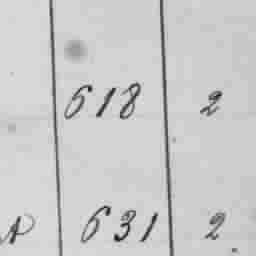 618 2
631 2